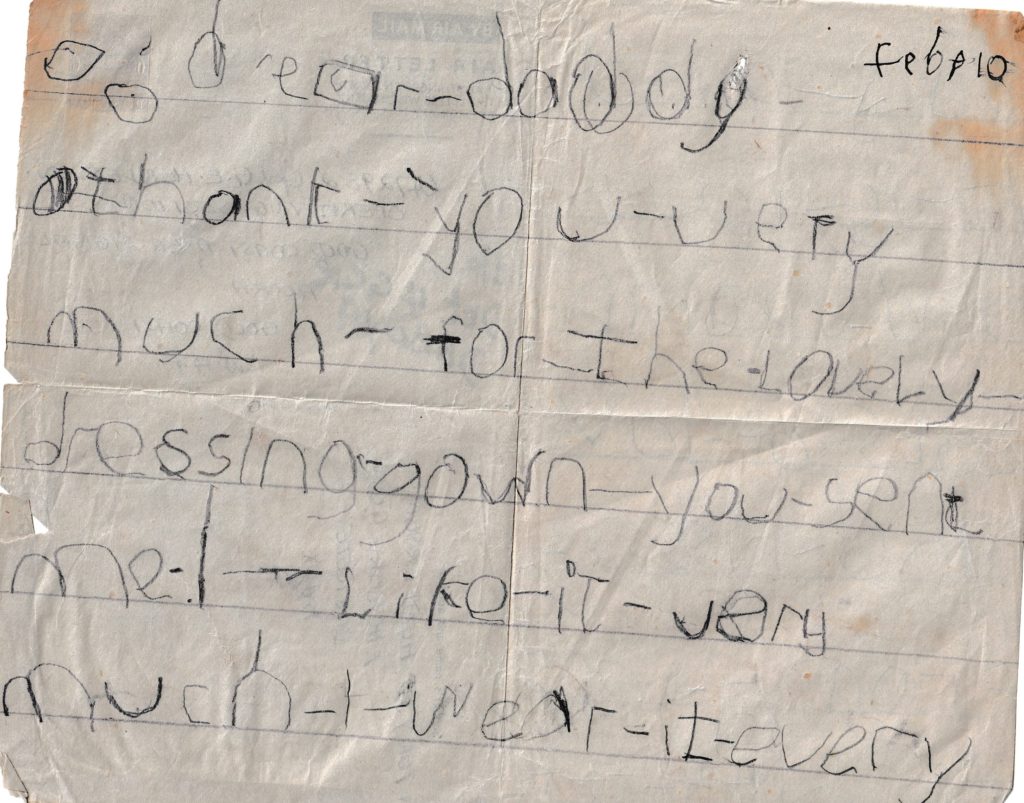 feb 10
dear-daddy-
thank-you-very
much-for-the-Lovely-
dressing-gown-you-sent
me.I-Like-it-very
much-I-wear-it-every
BY AIR MAIL
AIR LETTER